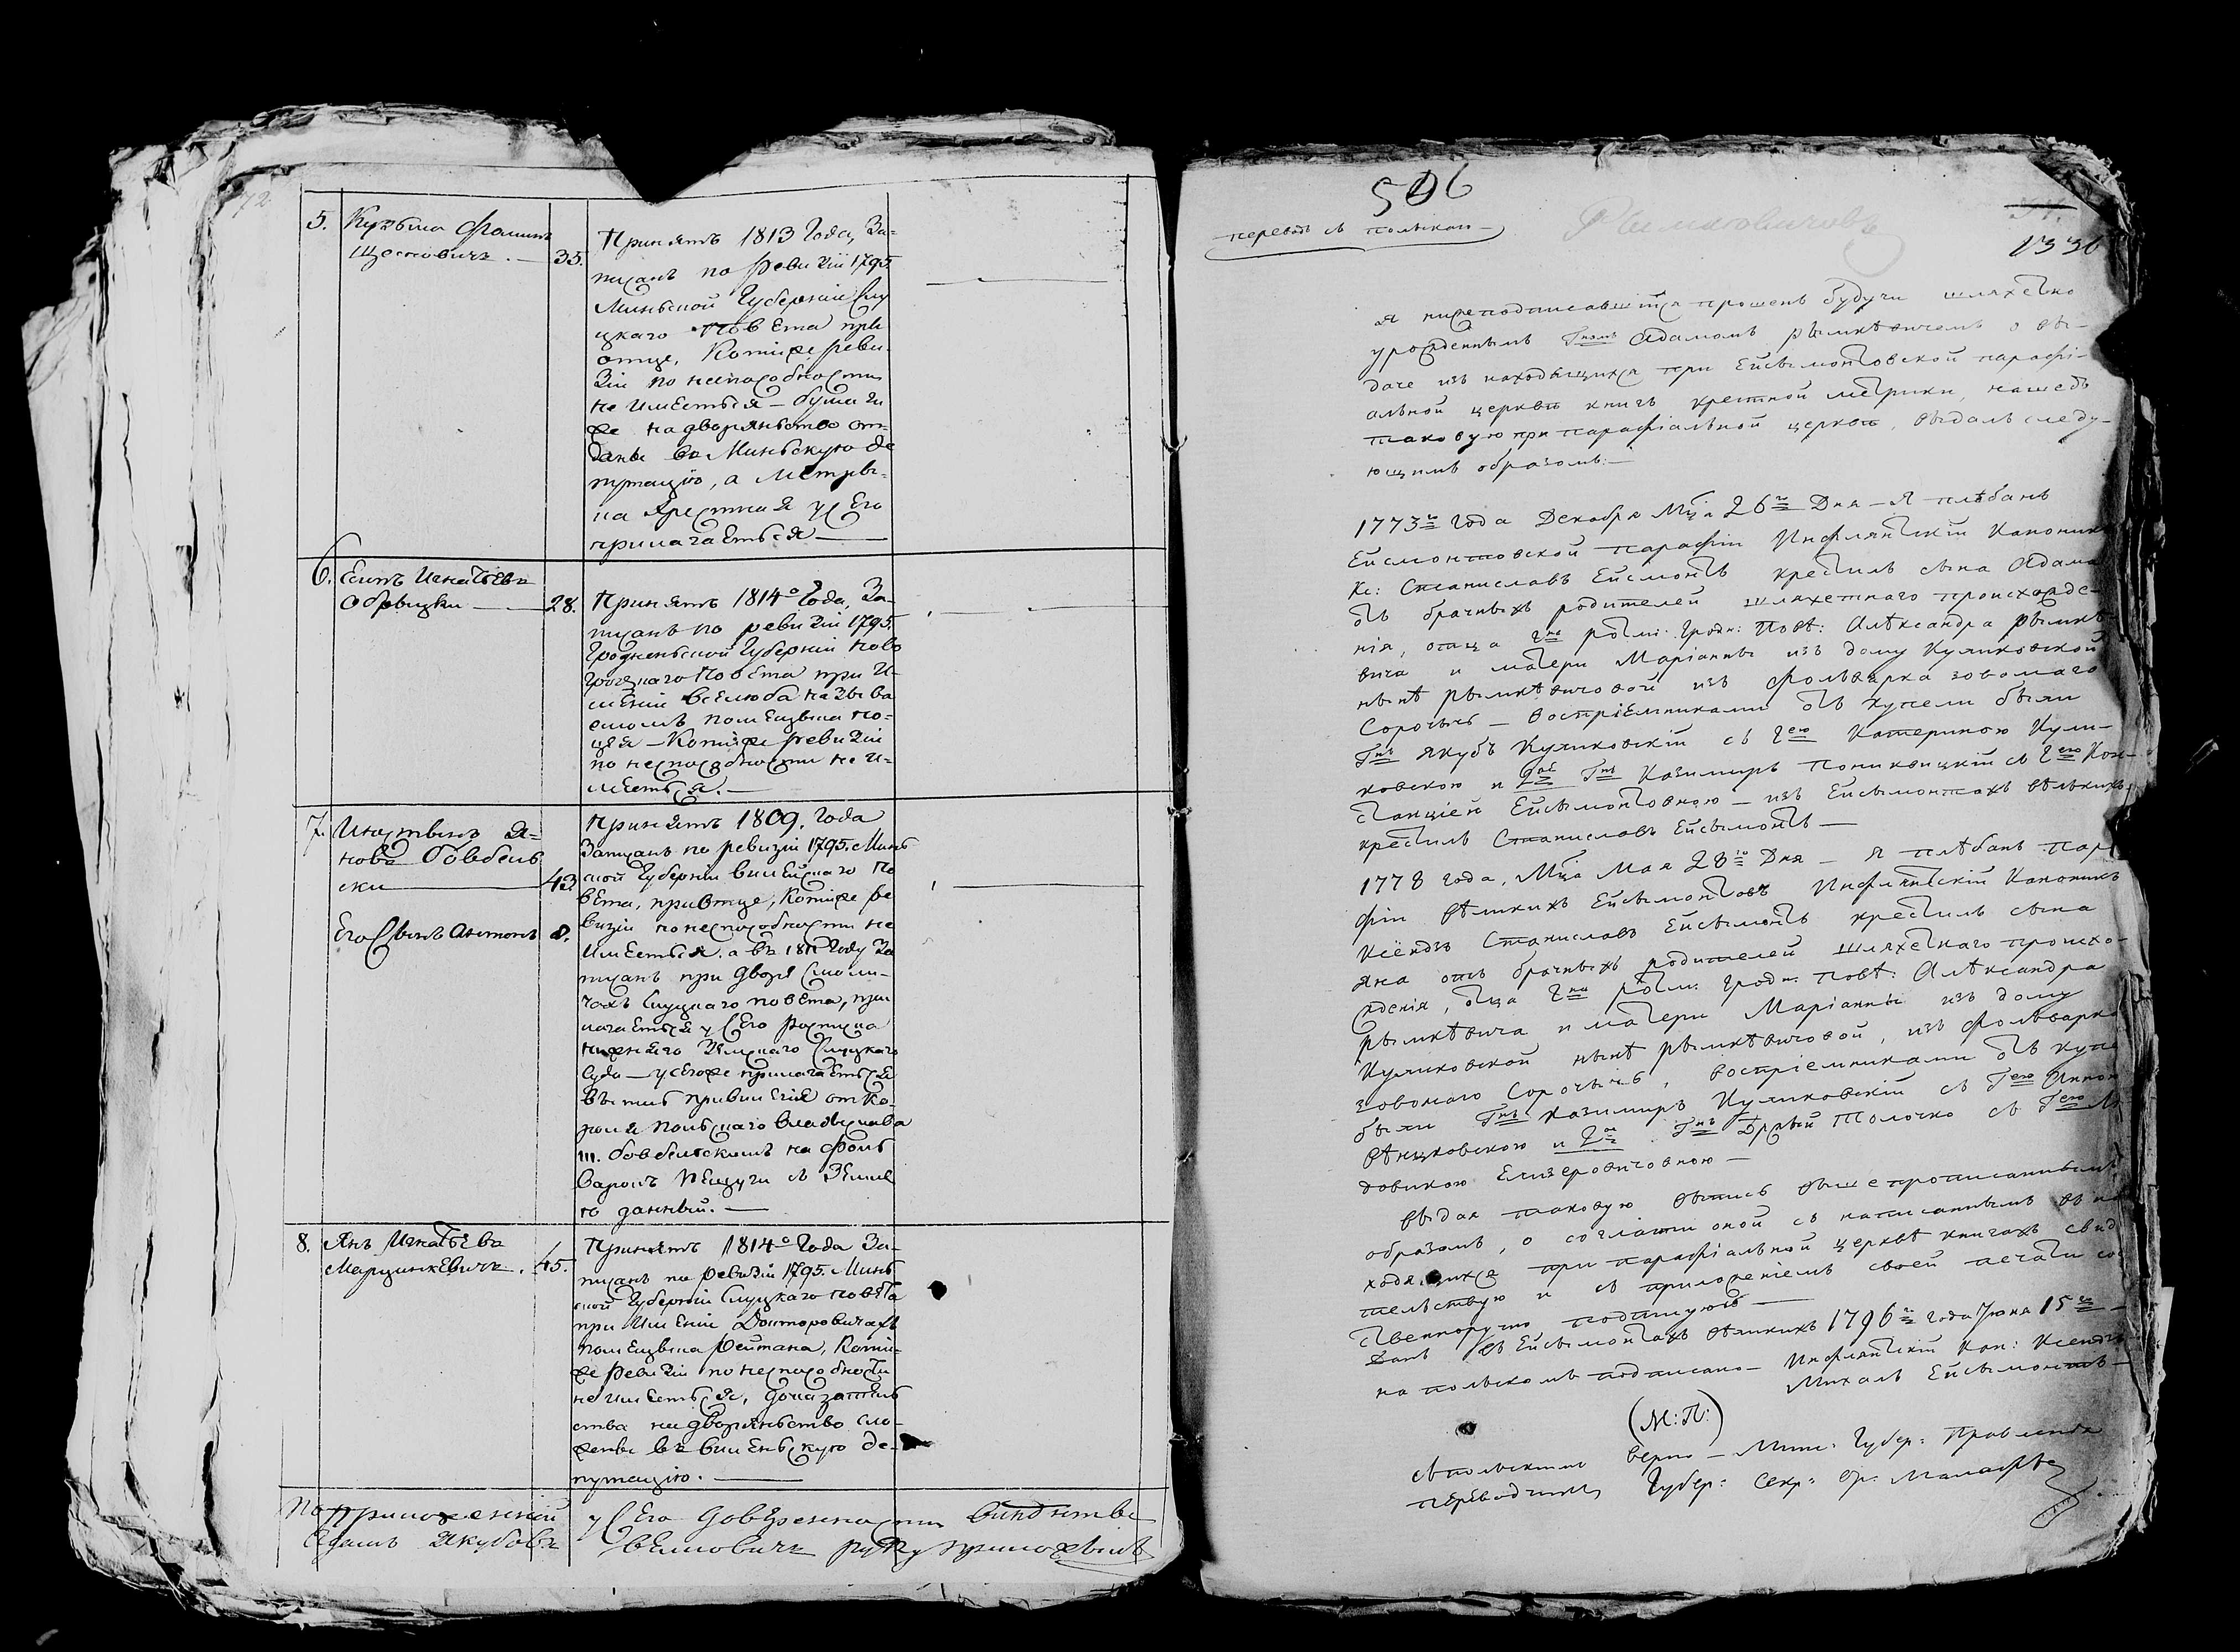 72
5. Кузьма Фоминъ
Щесновичъ. — 35.
Принятъ 1813 Года, За-
писанъ по ревизіи 1795.
Миньской Губерніи Слу
цкаго Повѣта при
отце, Копіиже реви-
зіи по неспособности
не имеетьдя — бумаги
же на дворяньство от-
даны въ Миньскую де
путацію, а Метри-
ка Крестная у сего
прилагаеться —
6. Есипъ Игнатьевъ
Обревцки — 28.
Принятъ 1814-о Года, За-
писанъ по ревизіи 1795.
Гродненьской Губерніи Ново
Грудзкаго Повета при И-
меніи Вселюба называ
емомъ помещика
— Копіиже ревизіи
по неспособности не и-
меетьдя. —
7. Яно-
ва
ски — 43
Его Сынъ Антонъ 8.
Принятъ 1809. Года
Записанъ по ревизіи 1795. Минь
ской Губерніи Вилейскаго По
вета, приотце, Копіиже ре
визіи понеспособности не
имееться. а въ 1811 Году За
писанъ при дворе Смоли-
чахъ Слуцкаго повета, при
лагаеться у Сего росписка
нижняго Земскаго Слуцкаго
Суда — усегоже прилагаеться
выпис привилегіи от Ко-
роля Польскаго Владислава
на фоль
варокъ с Земле
ю данный. —
8. Янъ Игнатьевъ
Марцинкевичъ. 45.
Принятъ 1814-о Года За-
писанъ по ревизіи 1795. Минь
ской Губерніи Слуцкаго повѣта
при Именіи Докторовичахъ
помещика Рейтана, Копіи-
же ревизіи по неспособности
не имееться, доказатель
ства на дворяньство сло-
жены въ Виленьскую де-
путацію. —
По приложенной у Сего доверенности
Адамъ Якубовъ руку приложылъ
506
переводъ съ польскаго
Рымкевичовъ
1336
Я нижеподписавшійся прошенъ будучи шляхетно
урожденнымъ Гномъ Адамомъ Рымкѣвичемъ о вы-
даче изъ находящихся при Ейсымонтовской парафі-
альной церкви книгъ крестной метрики, нашедъ
таковую при парафіальной церкви, выдалъ следу-
ющимъ образомъ: —
1773го года Декабря Мца 26го Дня — Я плѣбанъ
Ейсмонтовской парафіи Инфлянтскій Каноникъ
Кс: Станиславъ Ейсмонтъ крестилъ сына Адама
отъ брачныхъ родителей шляхетнаго происхожде-
нія, отца Гна ротм: Гродн: Повѣ: Алѣксандра Рымкѣ
вича и матери Маріанны изъ дому Куликовской
нынѣ Рымкѣвичовой изъ фольварка зовомаго
Сорочычъ — воспріемниками отъ купели были
Гнъ Якубъ Куликовскій съ Гею Катериною Кули-
ковскою и 2ое Гнъ Казимиръ Пониквицкій съ Гею Кон-
станціей Ейсымонтовною — изъ Ейсымонтахъ вѣликихъ,
крестилъ Станиславъ Ейсымонтъ —
1778 года, Мца Мая 28го Дня — Я плѣбанъ пара
фіи вѣликихъ Ейсымонтовъ Инфлянтскій Каноникъ
Ксіондзъ Станиславъ Ейсымонтъ крестилъ сына
Яна отъ брачныхъ родителей шляхетнаго происхо-
жденія, отца Гна ротм: Гродн: повѣ: Алѣксандра
Рымкѣвича и матери Маріанны изъ дому
Куликовской нынѣ Рымкѣвичовой, изъ фольварка
зовомаго Сорочычъ, воспріемниками отъ купе
были Гнъ Казимиръ Куликовскій съ Гею Анною
Вѣнцковскою и 2ое Гнъ Толочко съ Гею Лю
довикою Елизеровичовною —
Выдая таковую выпись вышепрописаннымъ
образомъ, о согласіи оной съ написаннымъ въ на
ходящихся при парафіальной церквѣ книгахъ свидѣ
тельствую и съ приложеніемъ своей печати со
ственноручно подписуюсь —
Данъ въ Ейсымонтахъ вѣликихъ 1796го года Іюня 15го —
на польскомъ подписано — Инфлянтскій Кан: Ксендзъ
Михалъ Ейсымонтъ —
(М:П:)
съ польскимъ верно — Минс: Губер: Правленія
переводчикъ Губер: Секр: